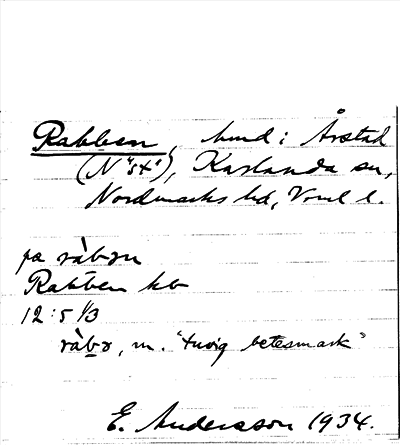 Rabben, hmd i Årstad
(N "54"), Karlanda sn,
Nordmarks hd, Vrml l.
på ràbən
Rabben kb
12:5 1/3
ràbə, m. "tuvig betesmark"
E. Andersson 1934.